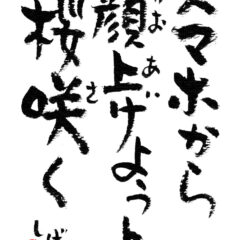 スマホから
顔上げよう
お あ
桜咲く
さ
しば